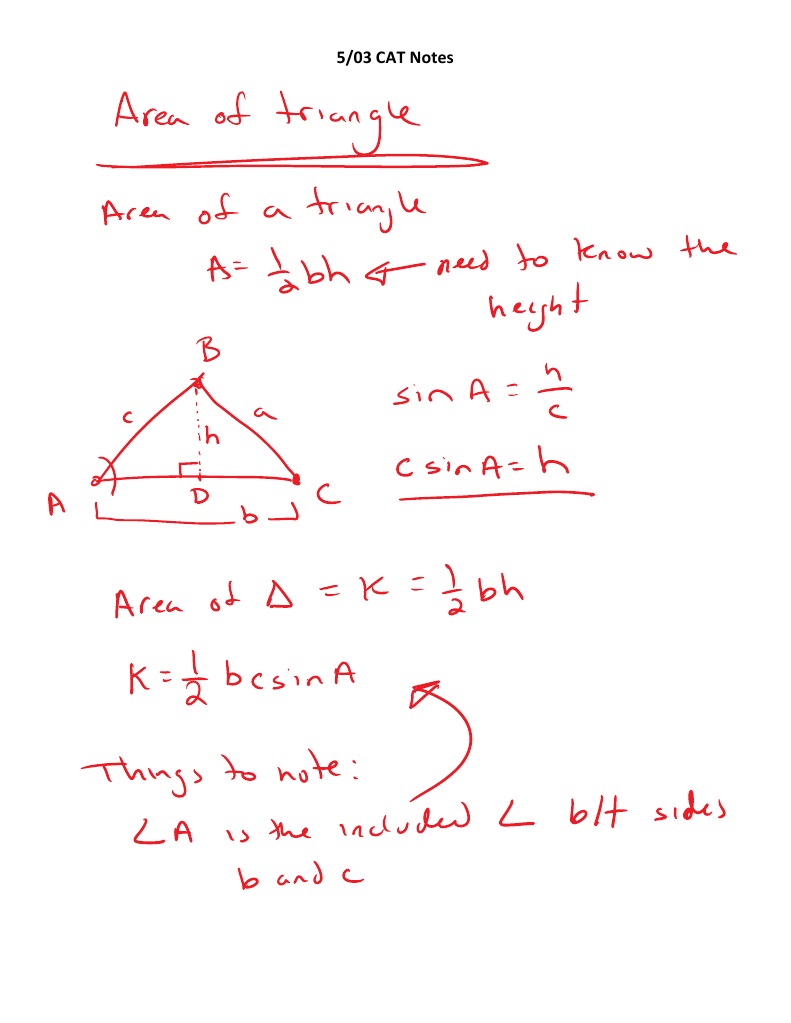 5/03 CAT Notes
Area of triangle
Area of a triangle
A = 1/2 bh ← need to know the
height
B
c
a
h
A
D
C
b
sin A = h/c
c sin A = h
Area of Δ = K = 1/2 bh
K = 1/2 bc sin A
Things to note:
∠A is the included ∠ b/t sides
b and c